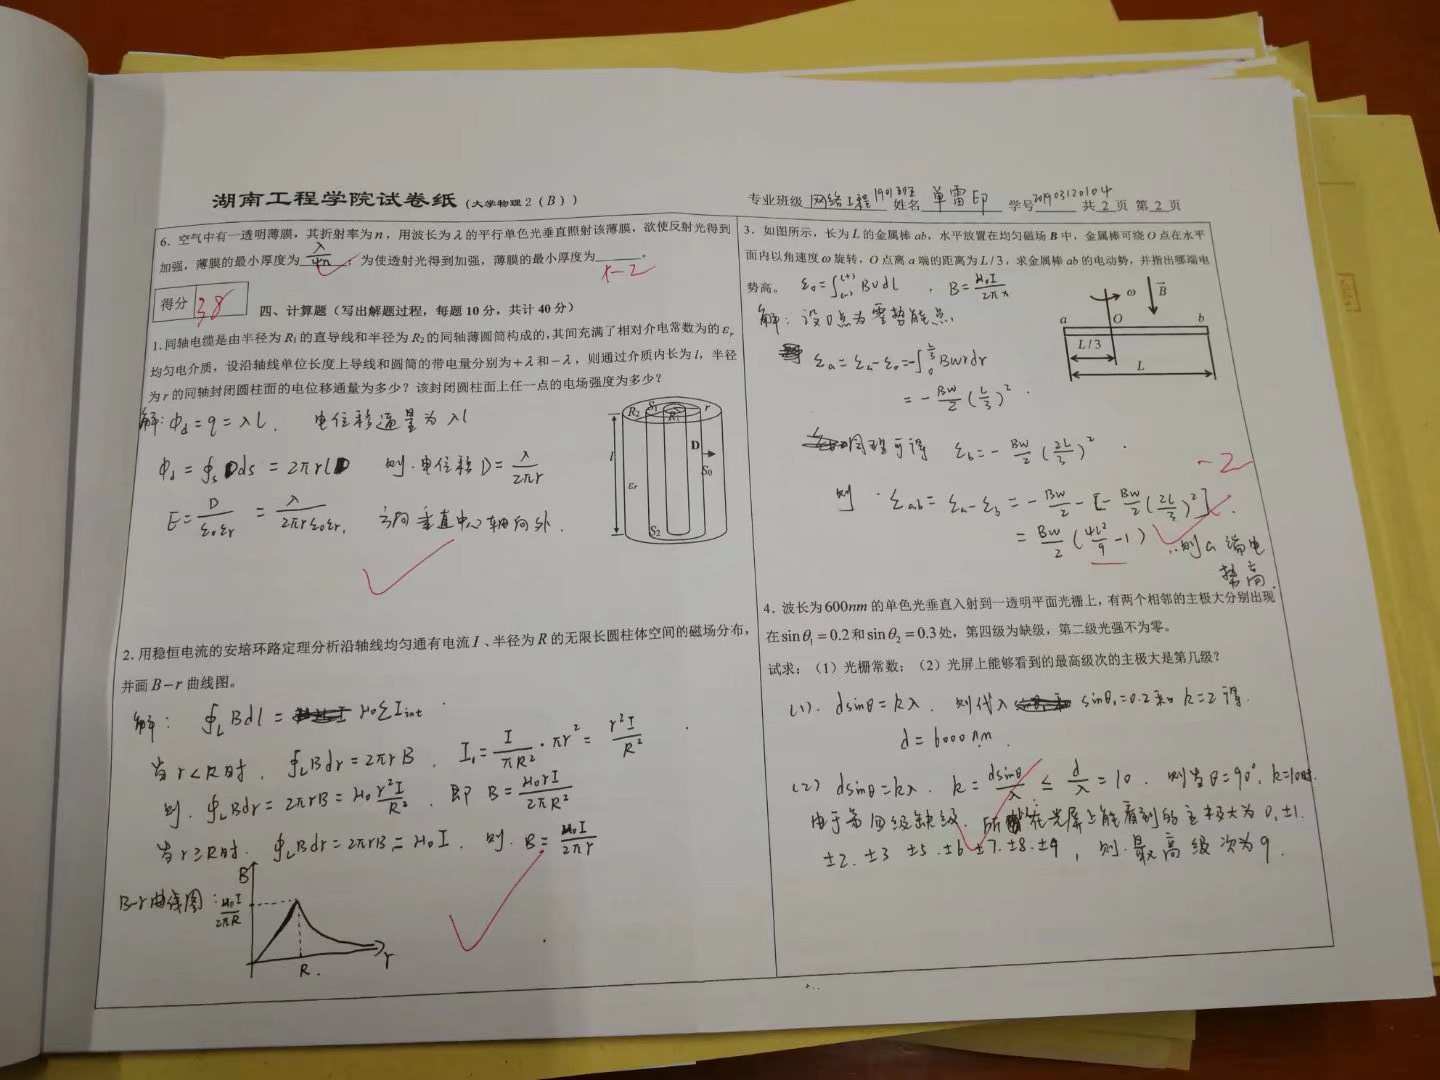 湖南工程学院试卷纸(大学物理2(B))
专业班级 网络工程1901班 姓名 单雷印 学号201903120104 共 2 页 第 2 页
6. 空气中有一透明薄膜，其折射率为n，用波长为λ的平行单色光垂直照射该薄膜，欲使反射光得到
加强，薄膜的最小厚度为 λ/4n ；为使透射光得到加强，薄膜的最小厚度为 。
×-2
得分 38
四、计算题（写出解题过程，每题10分，共计40分）
1.同轴电缆是由半径为R₁的直导线和半径为R₂的同轴薄圆筒构成的,其间充满了相对介电常数为的εr
均匀电介质，设沿轴线单位长度上导线和圆筒的带电量分别为+λ和-λ，则通过介质内长为l，半径
为r的同轴封闭圆柱面的电位移通量为多少？该封闭圆柱面上任一点的电场强度为多少？
解:Φd=q=λl. 电位移通量为λl
Φd=∮s Dds=2πrlD 则.电位移D=λ/2πr
E=D/ε₀εr=λ/2πrε₀εr. 方向垂直中心轴向外.
R₂ S₁ R₁ r
l
D
S₀
εr
S₂
2. 用稳恒电流的安培环路定理分析沿轴线均匀通有电流I、半径为R的无限长圆柱体空间的磁场分布，
并画B-r曲线图。
解: ∮L Bdl= μ₀ΣIint
当r<R时. ∮L Bdr=2πrB. I₁=I/πR²·πr²=r²I/R²
则.∮L Bdr=2πrB=μ₀r²I/R². 即 B=μ₀rI/2πR²
当r≥R时. ∮L Bdr=2πrB=μ₀I. 则.B=μ₀I/2πr
B-r曲线图:
B
μ₀I/2πR
R.
r
3. 如图所示，长为L的金属棒ab，水平放置在均匀磁场B中，金属棒可绕O点在水平
面内以角速度ω旋转，O点离a端的距离为L/3，求金属棒ab的电动势，并指出哪端电
势高。 ε₀=∫(-)(+) Bvdl , B=μ₀I/2πx
解: 设O点为零势能点.
εa=εa-ε₀=-∫₀^(L/3) Bwrdr
=-Bw/2(L/3)².
同理可得 εb=-Bw/2(2L/3)².
-2
则 εab=εa-εb=-Bw/2-[-Bw/2(2L/3)²].
=Bw/2(4L²/9-1) ∴则a端电
势高.
ω B
a O b
L/3
L
4. 波长为600nm的单色光垂直入射到一透明平面光栅上，有两个相邻的主极大分别出现
在sinθ₁=0.2和sinθ₂=0.3处，第四级为缺级，第二级光强不为零。
试求：（1）光栅常数；（2）光屏上能够看到的最高级次的主极大是第几级？
(1). dsinθ=kλ. 则代入 sinθ₁=0.2和k=2得.
d=6000nm.
(2) dsinθ=kλ. k=dsinθ/λ≤d/λ=10. 则当θ=90°. k=10时.
由于第四级缺级. 所以在光屏上能看到的主极大为0.±1.
±2.±3 ±5.±6.±7.±8.±9, 则.最高级次为9.